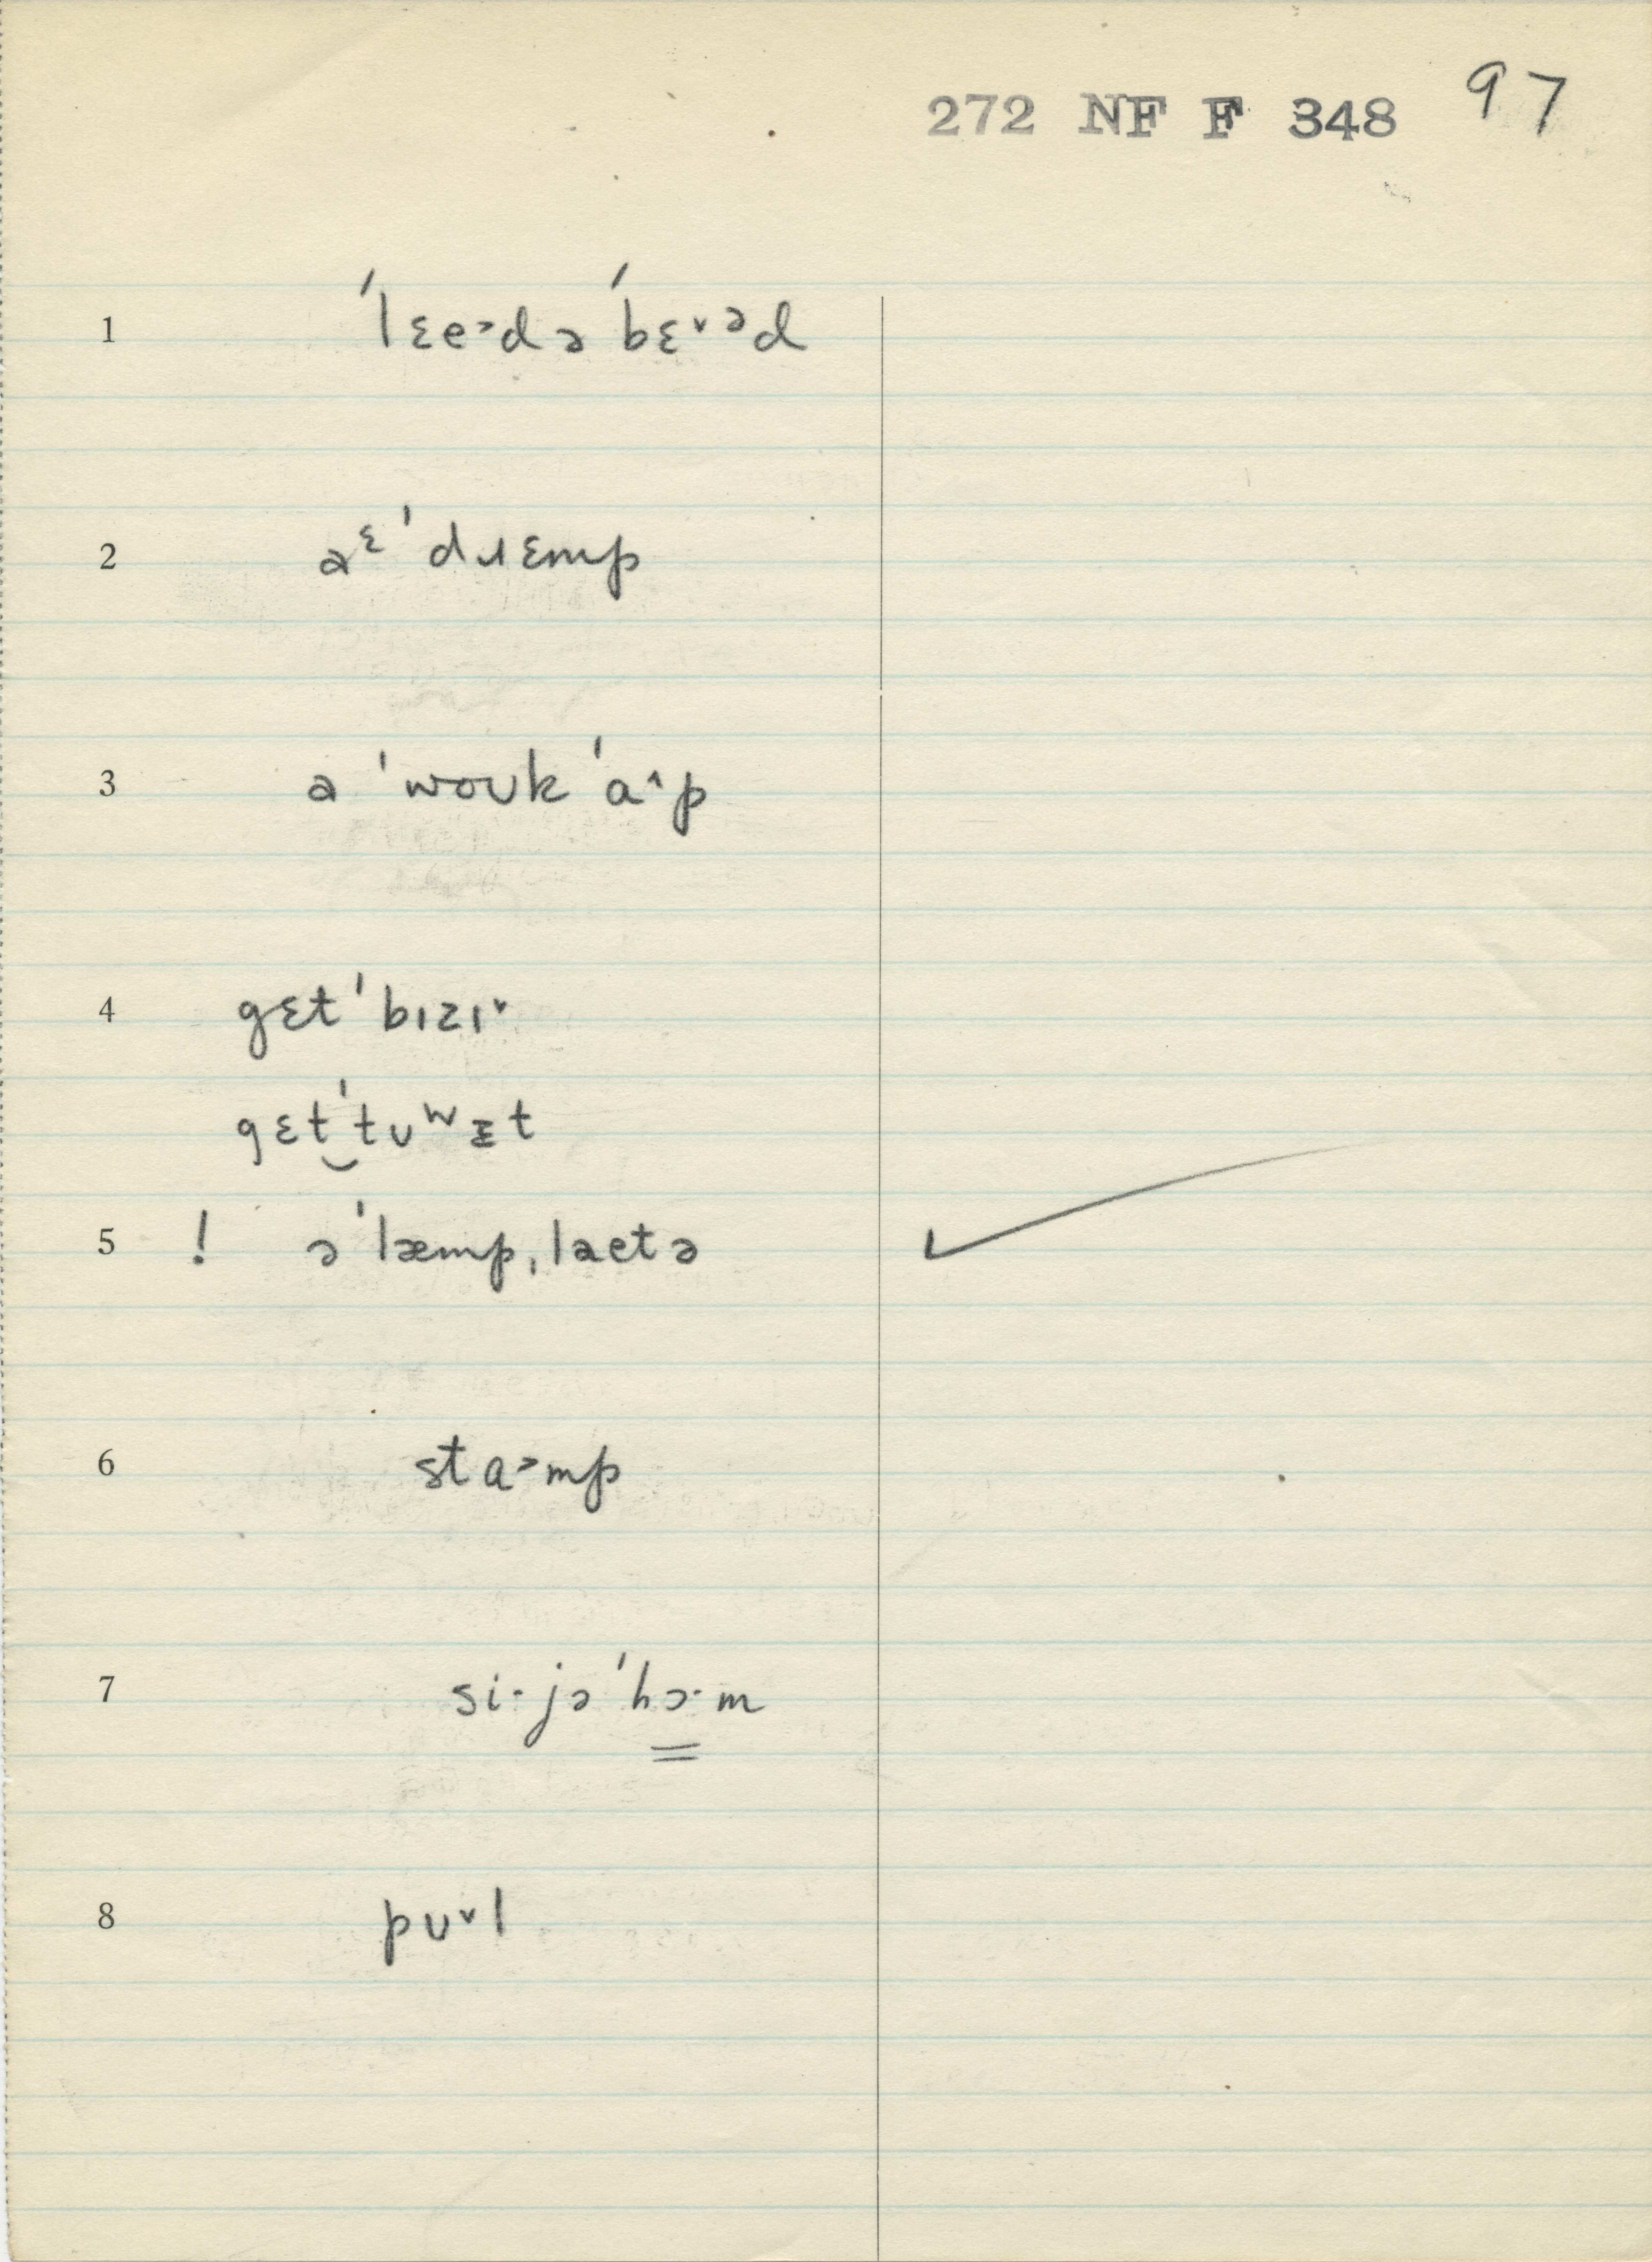 272 NF F 348 97
1 ˈlɛe˃d ə ˈbɛ˅ᵊd
2 aᵋ ˈdɹɛmp
3 a ˈwoʊk ˈɑ˄p
4 gɛt ˈbɪzɪ˅
gɛt‿ˈtʊʷᵻt
5 ! ə ˈlæmpˌlaetə
6 stɑ˃mp
7 si·jə ˈhɔ·m
8 pʊ˅l